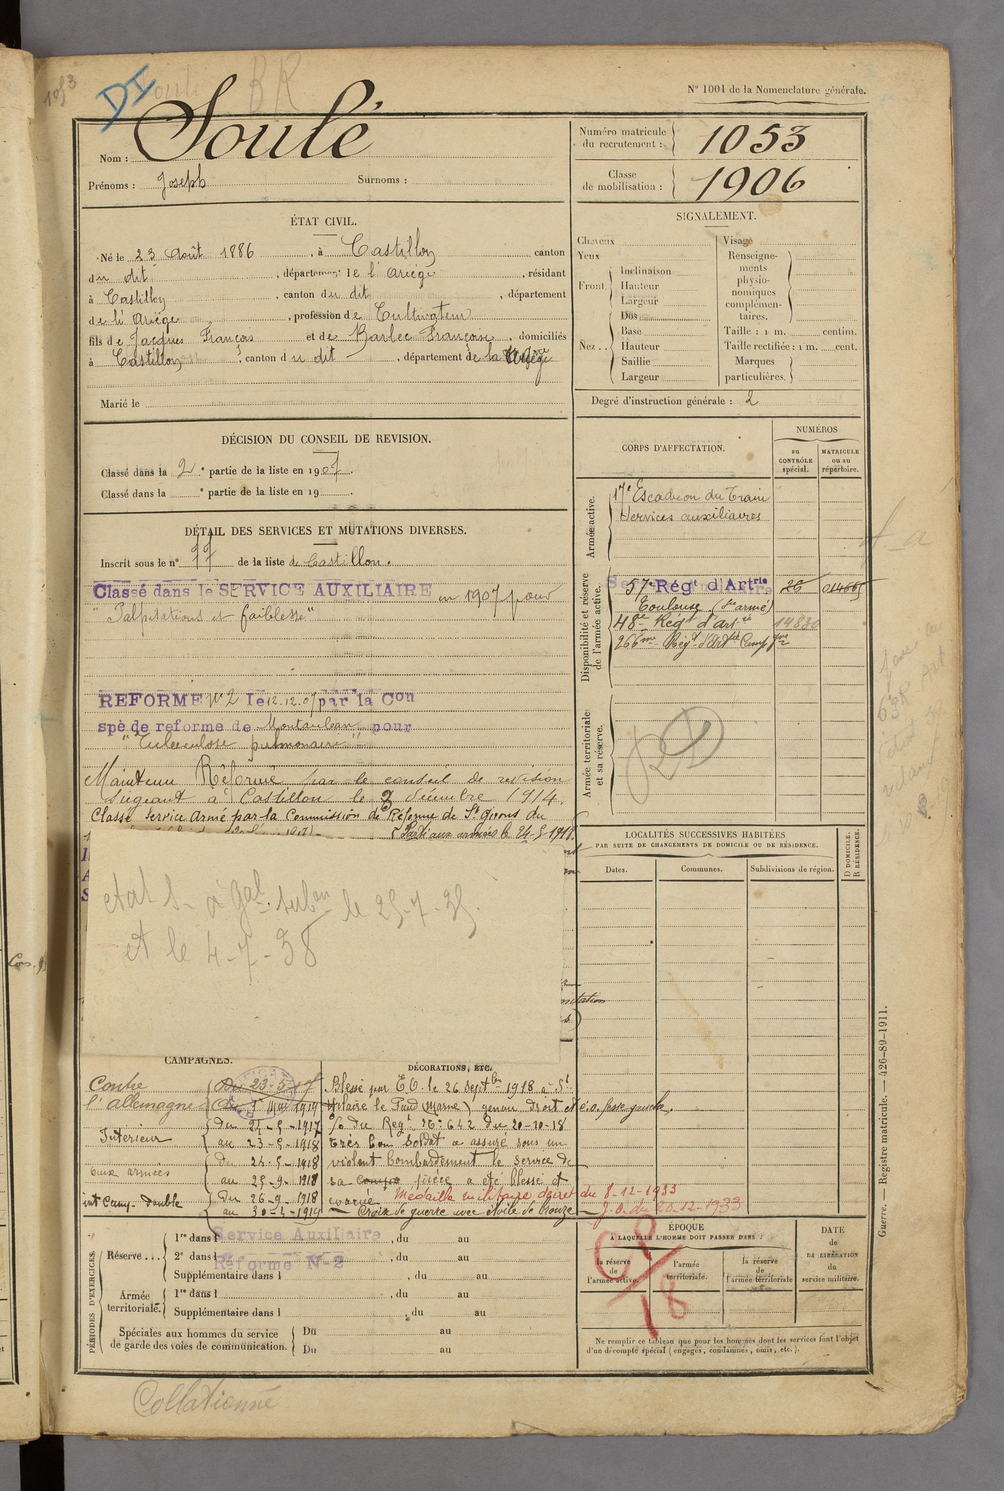 1053
DI
BR
N° 1001 de la Nomenclature générale.
Nom : Soulé
Prénoms : Joseph Surnoms :
Numéro matricule du recrutement : 1053
Classe de mobilisation : 1906
ÉTAT CIVIL.
Né le 23 Août 1886, à Castillon canton
du dit, département de l'Ariège, résidant
à Castillon, canton du dit, département
de l'Ariège, profession de Cultivateur
fils de Jacques François et de Barbec Françoise, domiciliés
à Castillon, canton du dit, département de la Ariège
Marié le
SIGNALEMENT.
Cheveux
Yeux
Front Inclinaison
Hauteur
Largeur
Nez Dos
Base
Hauteur
Saillie
Largeur
Visage
Renseignements physionomiques complémentaires.
Taille : 1 m. centim.
Taille rectifiée : 1 m. cent.
Marques particulières.
Degré d'instruction générale : 2
DÉCISION DU CONSEIL DE REVISION.
Classé dans la 2e partie de la liste en 1907.
Classé dans la e partie de la liste en 19
DÉTAIL DES SERVICES ET MUTATIONS DIVERSES.
Inscrit sous le n° 77 de la liste de Castillon.
Classé dans le SERVICE AUXILIAIRE en 1907 pour
"Palpitations et faiblesse"
REFORMÉ N°2 le 12.12.07 par la Con
spé de reforme de Montauban pour
"Tuberculose pulmonaire"
Maintenu Réformé par le conseil de revision
siégeant à Castillon le 9 décembre 1914.
Classé service Armé par la Commission de Réforme de St Girons du
Parti aux armées le 24-5-1918.
etat S- a Gal. Subon le 25-7-35.
et le 4-7-38
CORPS D'AFFECTATION.
NUMÉROS
au CONTRÔLE spécial.
MATRICULE ou au répertoire.
Armée active.
17e Escadron du Train
Services auxiliaires
Disponibilité et réserve de l'armée active.
57e Régt d'Artrie
Toulouse (s. armé)
48me Régt d'artrie 14830
266me Régt d'Artie Campgne
Armée territoriale et sa réserve.
RD
LOCALITÉS SUCCESSIVES HABITÉES
PAR SUITE DE CHANGEMENTS DE DOMICILE OU DE RÉSIDENCE.
Dates.
Communes.
Subdivisions de région.
D DOMICILE.
R RÉSIDENCE.
CAMPAGNES.
Contre l'Allemagne
du 23-5-17
au 1er Mai 1919
Intérieur du 24-5-1917
au 23-5-1918
aux armées du 24-5-1918
au 25-9-1918
int Camp. double du 26-9-1918
au 30-4-1919
DÉCORATIONS, ETC.
Blessé par E O. le 26 Septbre 1918 à St
Hilaire le Gand (Marne) genou droit et é.o. fesse gauche.
C/o du Regt N°: 642 du 20-10-18
Très bon soldat a assuré sous un
violent bombardement le service de
sa pièce a été blessé et
évacué Médaille militaire décret du 8-12-1933
Croix de guerre avec étoile de Bronze J.O. du 20-12-1933
PÉRIODES D'EXERCICES.
Réserve... 1re dans l Service Auxiliaire, du au
2e dans l Réformé N°2, du au
Supplémentaire dans l, du au
Armée territoriale. 1re dans l, du au
Supplémentaire dans l, du au
Spéciales aux hommes du service de garde des voies de communication. Du au
Du au
ÉPOQUE
À LAQUELLE L'HOMME DOIT PASSER DANS :
la réserve de l'armée active.
l'armée territoriale.
la réserve de l'armée territoriale
DATE de LA LIBÉRATION du service militaire.
CP/18
Ne remplir ce tableau que pour les hommes dont les services font l'objet
d'un décompte spécial (engagés, condamnés, omis, etc.).
Guerre. — Registre matricule. — 426-89-1911.
Collationné